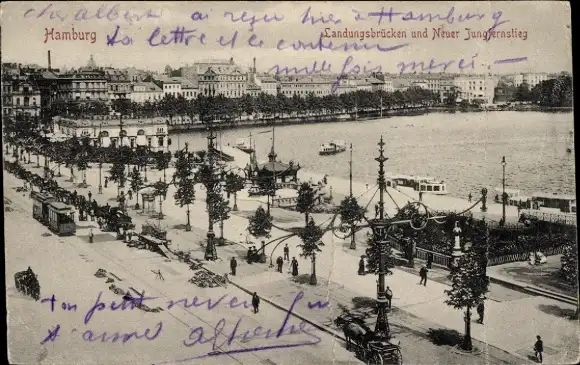 cher Albert ai reçu hier à Hamburg
Hamburg
Landungsbrücken und Neuer Jungfernstieg
ta lettre et le contenu
mille fois merci —
ton petit neveu qui
t'aime Albert